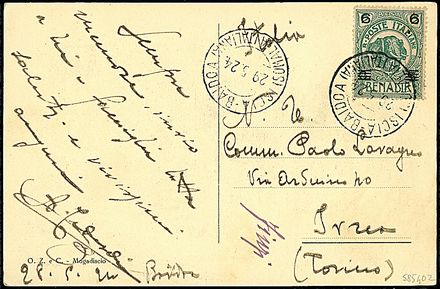 Sempre
memore, invio
a Lei e famiglia
saluti e vivissimi
auguri
O. Z. e C. - Mogadiscio
28.5.24
Italia
BAIDOA
29.5.24
6 6
POSTE ITALIANE
BENADIR
BAIDOA
Comm. Paolo Lavagno
Via Arduino
Ivrea
(Torino)
585402